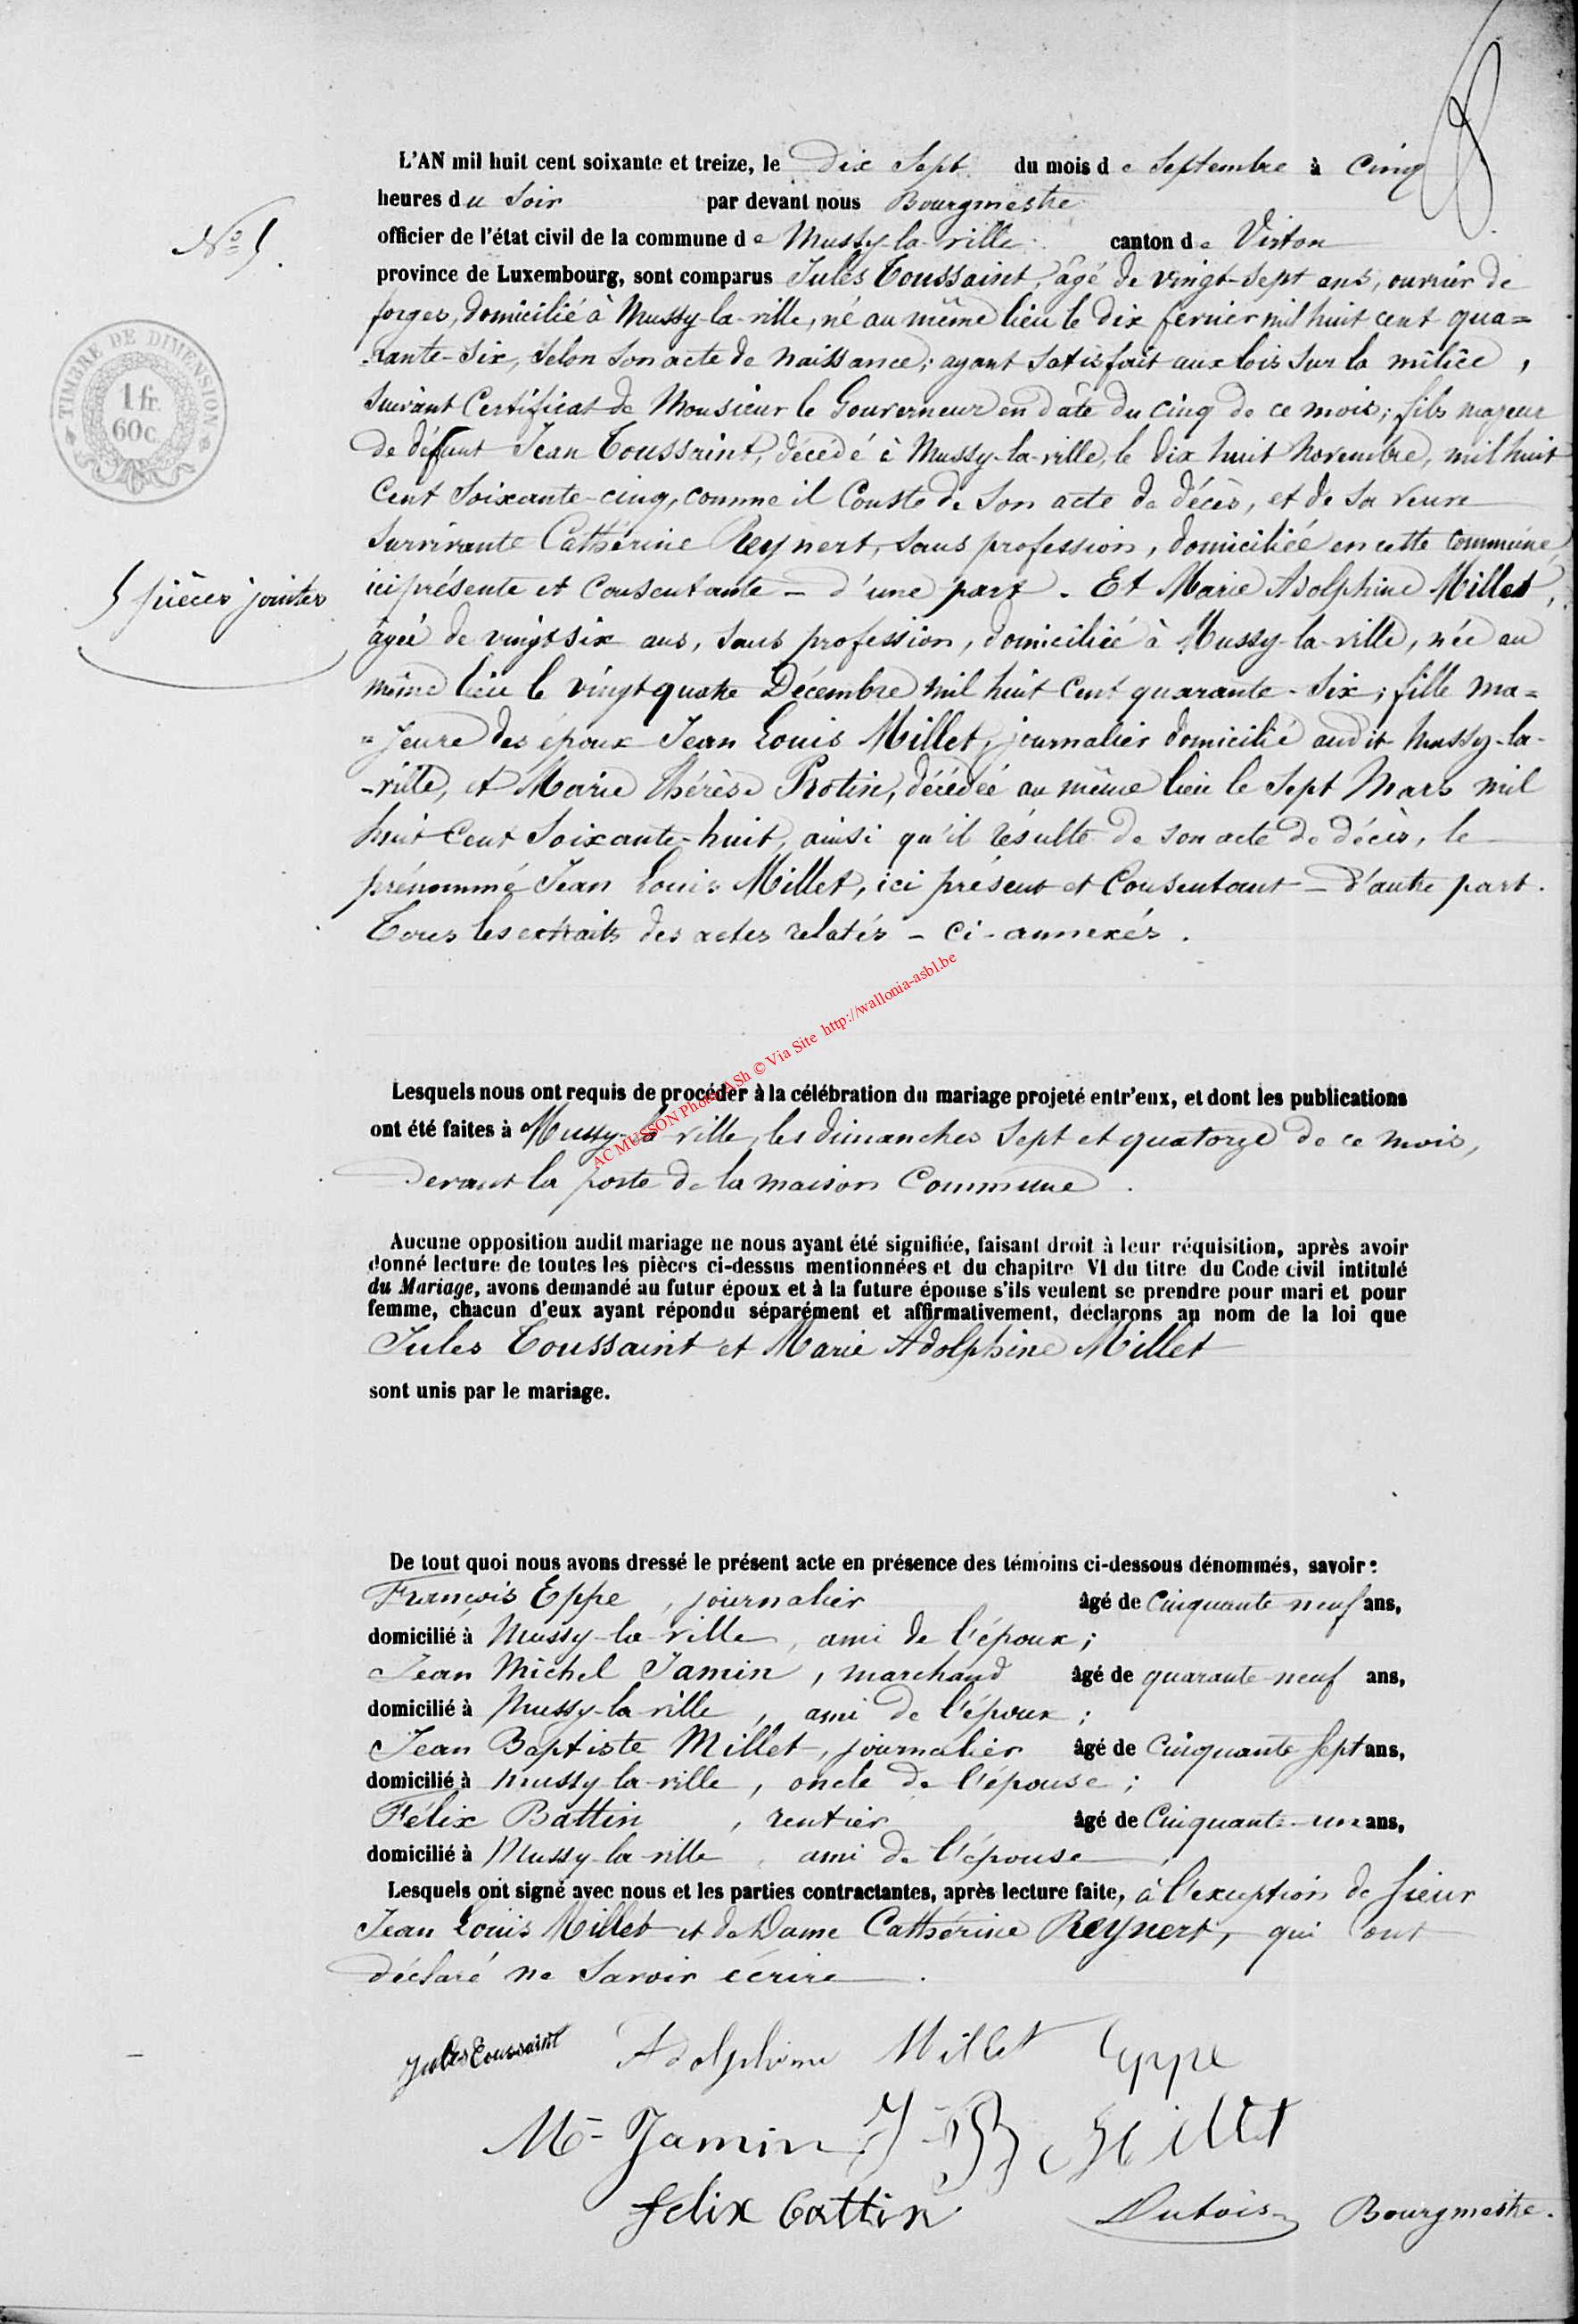 L'AN mil huit cent soixante et treize, le dix sept du mois de Septembre à cinq
heures du Soir par devant nous Bourgmestre
officier de l'état civil de la commune de Mussy-la-ville canton de Virton
province de Luxembourg, sont comparus Jules Toussaint, âgé de vingt-sept ans, ouvrier de
forges, domicilié à Mussy-la-ville, né au même lieu le dix fevrier mil huit cent qua=
-rante-six, selon son acte de naissance; ayant satisfait aux lois sur la milice,
suivant Certificat de Monsieur le Gouverneur en date du cinq de ce mois; fils majeur
de défunt Jean Toussaint, décédé à Mussy-la-ville, le dix huit Novembre, mil huit
Cent Soixante-cinq, comme il Conste de son acte de décès, et de sa veuve
survivante Cathérine Reynert, sans profession, domiciliée en cette commune,
ici présente et Consentante - d'une part. Et Marie Adolphine Millet,
âgée de vingt six ans, sans profession, domiciliée à Mussy-la-ville, née au
même lieu le vingt quatre Décembre mil huit Cent quarante-six; fille ma=
=jeure des époux Jean Louis Millet, journalier domicilié audit Mussy-la-
-ville, et Marie Thérèse Protin, décédée au même lieu le sept Mars mil
huit Cent Soixante-huit, ainsi qu'il résulte de son acte de décès, le
prénommé Jean Louis Millet, ici présent et Consentant - d'autre part.
Tous les extraits des actes relatés - Ci-annexés.
N° 5.
TIMBRE DE DIMENSION
1 fr.
60 c.
5 pièces jointes
AC MUSSON Photo ASh © Via Site http://wallonia-asbl.be
Lesquels nous ont requis de procéder à la célébration du mariage projeté entr'eux, et dont les publications
ont été faites à Mussy-la ville, les dimanches sept et quatorze de ce mois,
devant la porte de la maison Commune.
Aucune opposition audit mariage ne nous ayant été signifiée, faisant droit à leur réquisition, après avoir
donné lecture de toutes les pièces ci-dessus mentionnées et du chapitre VI du titre du Code civil intitulé
du Mariage, avons demandé au futur époux et à la future épouse s'ils veulent se prendre pour mari et pour
femme, chacun d'eux ayant répondu séparément et affirmativement, déclarons au nom de la loi que
Jules Toussaint et Marie Adolphine Millet
sont unis par le mariage.
De tout quoi nous avons dressé le présent acte en présence des témoins ci-dessous dénommés, savoir:
François Eppe, journalier âgé de Cinquante neuf ans,
domicilié à Mussy-la-ville, ami de l'époux;
Jean Michel Jamin, marchand âgé de quarante-neuf ans,
domicilié à Mussy-la-ville, ami de l'époux;
Jean Baptiste Millet, journalier âgé de Cinquante sept ans,
domicilié à Mussy-la-ville, oncle de l'épouse;
Félix Battin, rentier âgé de Cinquante-un ans,
domicilié à Mussy-la-ville, ami de l'épouse
Lesquels ont signé avec nous et les parties contractantes, après lecture faite, à l'exception de sieur
Jean Louis Millet et de Dame Cathérine Reynert, qui ont
déclaré ne savoir écrire.
Jules Toussaint Adolphine Millet Eppe
M- Jamin J-B Millet
felix battin Dutois Bourgmestre.